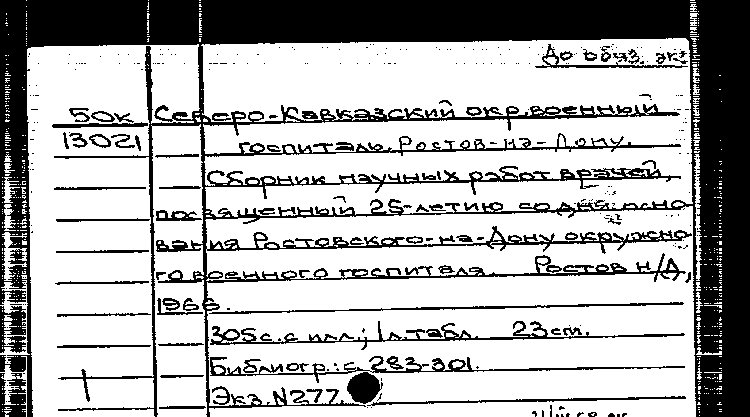 До обяз. эк
50к Северо-Кавказский окр.военный
13021 госпиталь. Ростов-на-Дону.
Сборник научных работ врачей,
посвященный 25-летию со дня осно-
вания Ростовского-на-Дону окружно-
го военного госпиталя. Ростов н/Д,
1966.
305с.с илл.; 1л.табл. 23см.
Библиогр.: с. 283-301.
1 Экз.N277.